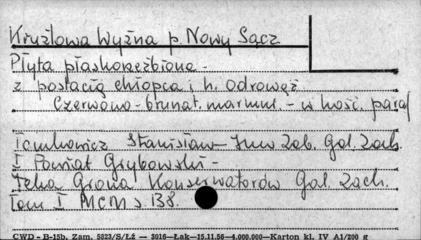 Krużlowa Wyżna p. Nowy Sącz
Płyta płaskorzeźbiona -
z postacią chłopca i h. odrowąż
Czerwono-brunat. marmur. - w kość. paraf
Tomkowicz Stanisław - Inw Zab. Gal. Zach.
I Powiat Grybowski -
Teka Grona Konserwatorów Gal. Zach.
Tom I MCM s. 138.
CWD - B-15b, Zam. 5823/S/Łź — 3016—Łak—15.11.56—4.000.000—Karton kl. IV A1/200 g